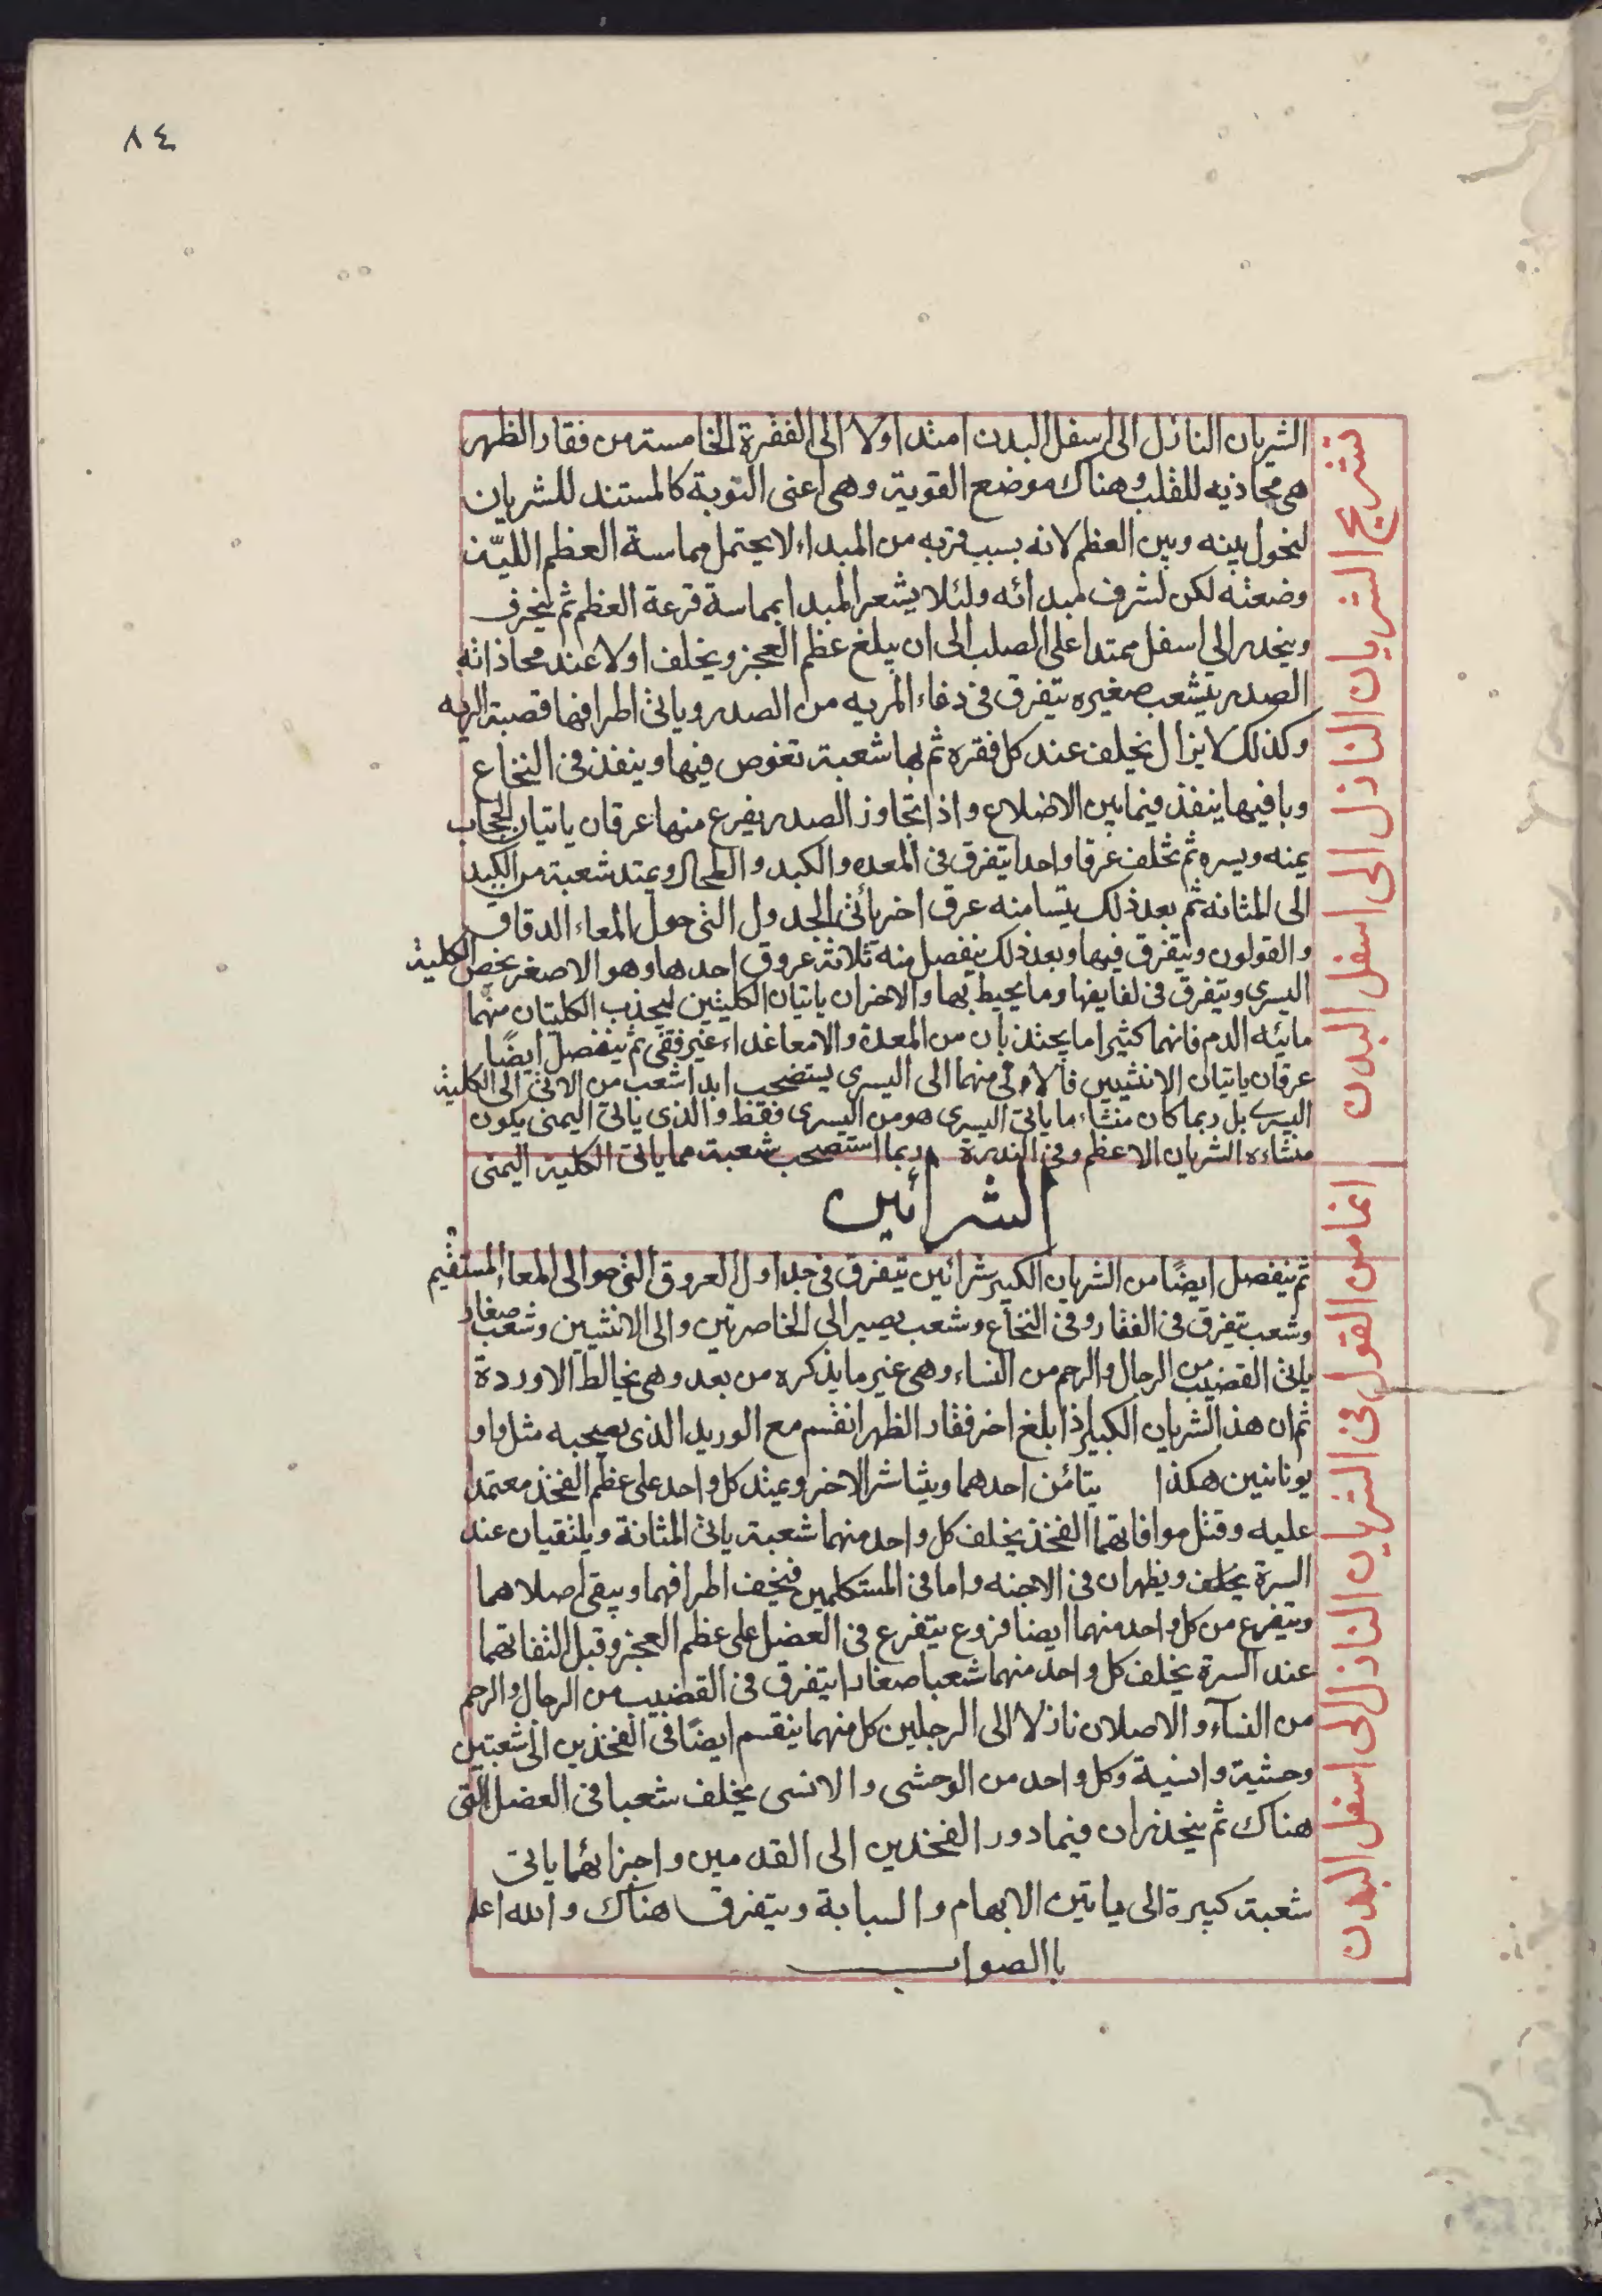 ٨٤
تشريح الشريان النازل الى اسفل البدن
الشريان النازل الى اسفل البدن امتد اولا الى الفقرة الخامسة من فقار الظهر
هى محاذيه للقلب وهناك موضع القوية وهى اعنى التوبة كالمستند للشريان
لتحول بينه وبين العظم لانه بسبب قربه من المبداء لا يحتمل مماسة العظم الليّن
وضعته لكن لشرف مبدائه ولئلا يشعر المبدا بمماسة قرعة العظم ثم ينحرف
وينحدر الى اسفل ممتدا على الصلب الى ان يبلغ عظم العجز ويخلف اولا عند محاذاته
الصدر يتشعب صغيره يتفرق فى دعاء المريه من الصدر وياتى اطرافها قصبة الريه
وكذلك لا يزال يخلف عند كل فقره ثم بها شعبة تغوص فيها وينفذ فى النخاع
وبافيها ينفذ فيما بين الاضلاع واذا تجاوز الصدر يفرع منها عرقان ياتيان الحجاب
يمنه ويسره ثم تخلف عرقا واحدا يتفرق فى المعده والكبد والطحال ويمتد شعبة من الكبد
الى المثانه ثم بعد ذلك يتسا منه عرق اخر يأتى الجدول التى حول المعاء الدقاق
والقولون ويتفرق فيها وبعد ذلك ينفصل منه ثلاثة عروق احدها وهو الاصغر يخص الكلية
اليسرى ويتفرق فى لفايفها وما يحيط بها والاخران ياتيان الكليتين ليجذب الكليتان منهما
مائيه الدم فانهما كثيرا ما يجتذبان من المعدة والامعا غداء غير نقى ثم ينفصل ايضًا
عرقان ياتيان الانثيين فالاولى منهما الى اليسرى يستصحب ابدا شعب من الاتى الى الكلية
اليسرى بل ربما كان منشاء ما ياتى اليسرى هو من اليسرى فقط والذى ياتى اليمنى يكون
منشاءه الشريان الاعظم وفى الندرة ربما استصحب شعبة مما ياتى الكلية اليمنى
الشرائين
انما من القول فى الشريان النازل الى اسفل البدن
ثم ينفصل ايضًا من الشريان الكبير شرائين تتفرق فى جداول العروق التى حوالى المعاء المستقيم
وشعب يتفرق فى الفقار وفى النخاع وشعب يصير الى الخاصرتين والى الانثيين وشعب صغار
ياتى القضيب من الرجال والرحم من النساء وهى غير ما يذكره من بعد وهى يخالط الاوردة
ثم ان هذ الشريان الكبير اذا بلغ اخر فقار الظهر انقسم مع الوريد الذى يصحبه مثل واو
يونانيين هكذا يتائن احدهما ويثاشر الاخر ويمتد كل واحد على عظم الفخذ معتمدا
عليه وقبل موافاتهما الفخذ يخلف كل واحد منهما شعبة ياتى المثانة ويلتقيان عند
السرة يخلف ويظهران فى الاجنه واما فى المستكملين فيخف اطرافهما ويبقى اصلاهما
ويتفرع من كل واحد منهما ايضا فروع يتفرع فى العضل على عظم العجز وقبل التفاتهما
عند السرة يخلف كل واحد منهما شعبا صغارا يتفرق فى القضيب من الرجال والرحم
من النسآء والاصلان نازلا الى الرجلين كل منهما ينقسم ايضًا فى الفخذين الى شعبتين
وحشية وانسية وكل واحد من الوحشى والانسى يخلف شعبا فى العضل التى
هناك ثم ينحدران فيما دور الفخذين الى القدمين واجزائهما ياتى
شعبة كبيرة الى ما بين الابهام والسبابة ويتفرق هناك والله اعلم
باالصواب